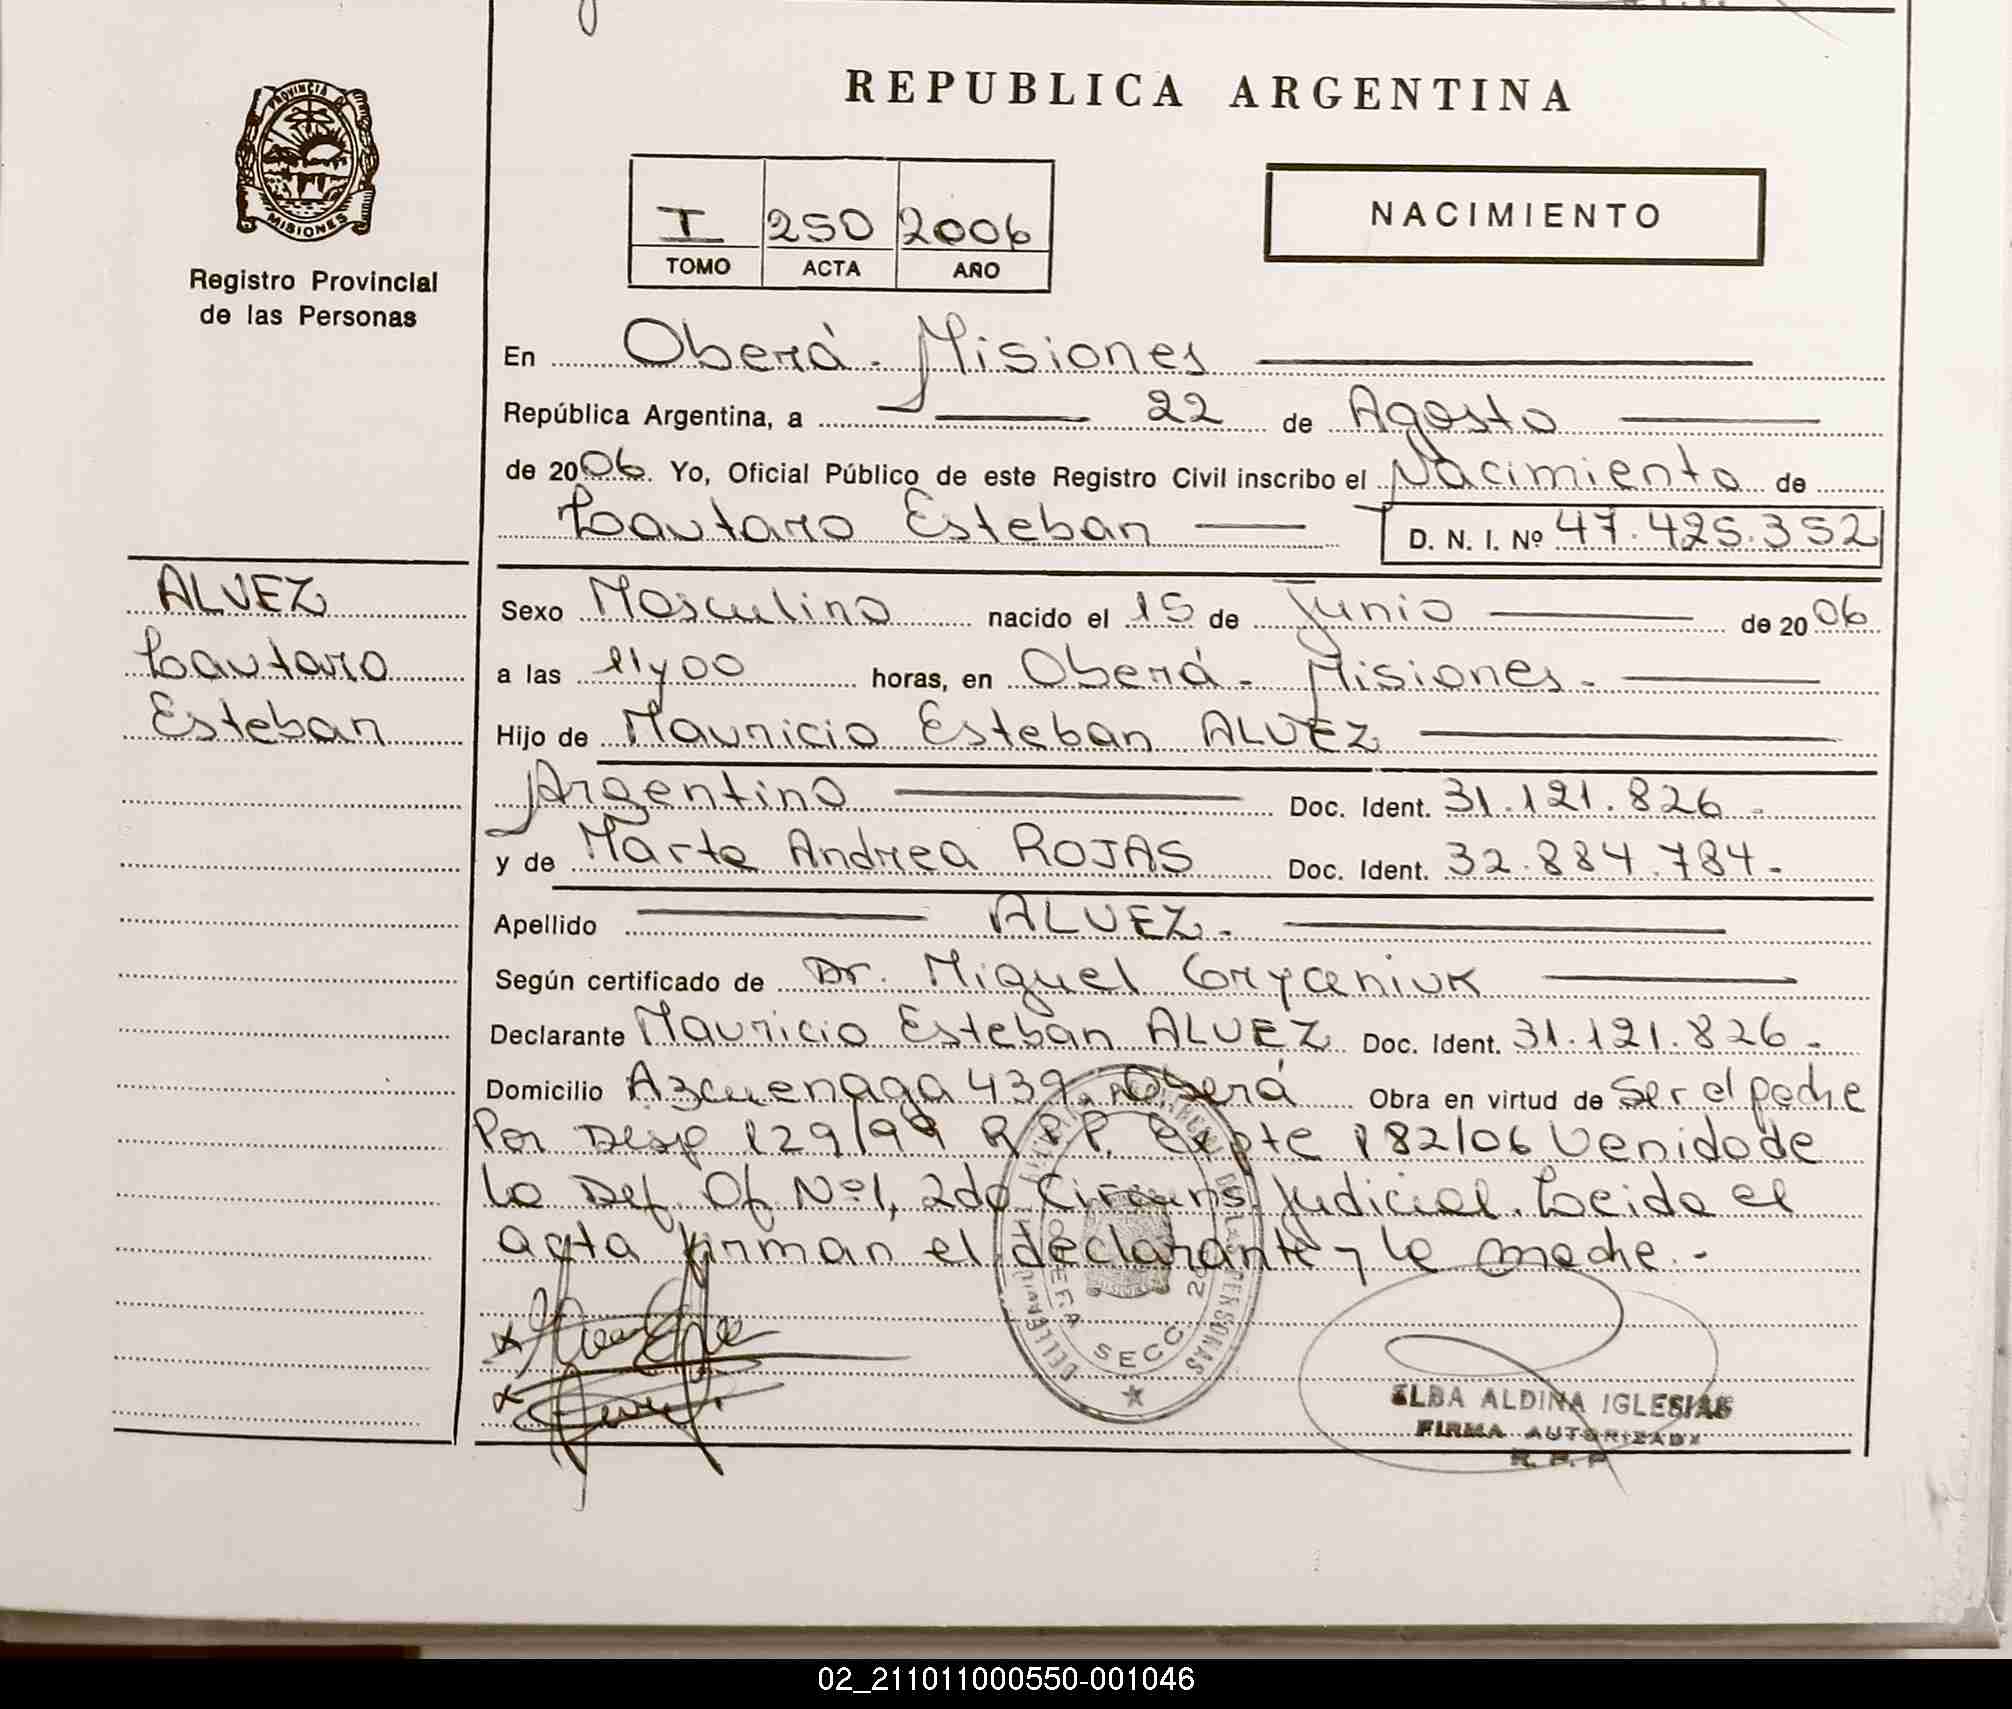 REPUBLICA ARGENTINA
PROVINCIA DE
MISIONES
Registro Provincial
de las Personas
I 250 2006
TOMO ACTA AÑO
NACIMIENTO
En Oberá - Misiones
República Argentina, a 22 de Agosto
de 2006. Yo, Oficial Público de este Registro Civil inscribo el Nacimiento de
Lautaro Esteban D. N. I. Nº 47.425.352
ALVEZ
Lautaro
Esteban
Sexo Masculino nacido el 15 de Junio de 2006
a las 11y00 horas, en Oberá - Misiones.
Hijo de Mauricio Esteban ALVEZ
Argentino Doc. Ident. 31.121.826.
y de Marta Andrea ROJAS Doc. Ident. 32.884.784.
Apellido ALVEZ.
Según certificado de Dr. Miguel Gryceniuk
Declarante Mauricio Esteban ALVEZ Doc. Ident. 31.121.826.
Domicilio Azcuenaga 439. Oberá Obra en virtud de ser el padre
Por Disp 129/99 R.P.P. Expte 182/06 Venido de
la Def. Of. Nº1, 2da Circuns Judicial. Leida el
acta firman el declarante y la madre.-
DE LAS PERSONAS
SECC 2
ELBA ALDINA IGLESIAS
FIRMA AUTORIZADA
R. P. P
02_211011000550-001046